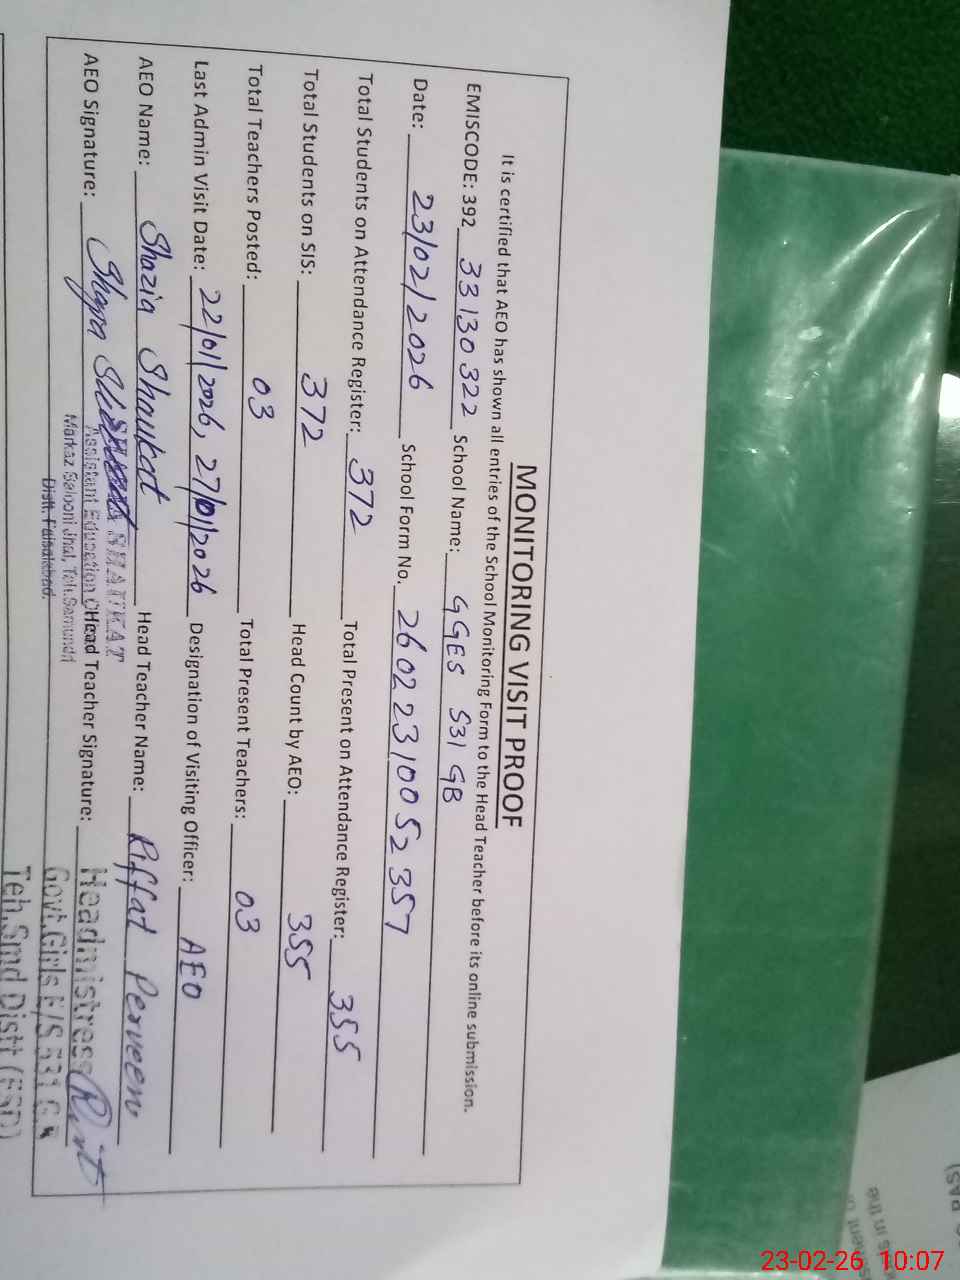 MONITORING VISIT PROOF
It is certified that AEO has shown all entries of the School Monitoring Form to the Head Teacher before its online submission.
EMISCODE: 392 33130322 School Name: GGES 531 GB
Date: 23/02/2026 School Form No. 26022310052357
Total Students on Attendance Register: 372 Total Present on Attendance Register: 355
Total Students on SIS: 372 Head Count by AEO: 355
Total Teachers Posted: 03 Total Present Teachers: 03
Last Admin Visit Date: 22/01/2026, 27/01/2026 Designation of Visiting Officer: AEO
AEO Name: Shazia Shaukat Head Teacher Name: Riffat Perveen
AEO Signature: Head Teacher Signature:
SHAUKAT
Assistant Education
Markaz Salooni Jhal, Teh. Samundri
Distt. Faisalabad.
Headmistress
Govt. Girls E/S 531 G.B
Teh. Smd Distt (FSD)
23-02-26 10:07